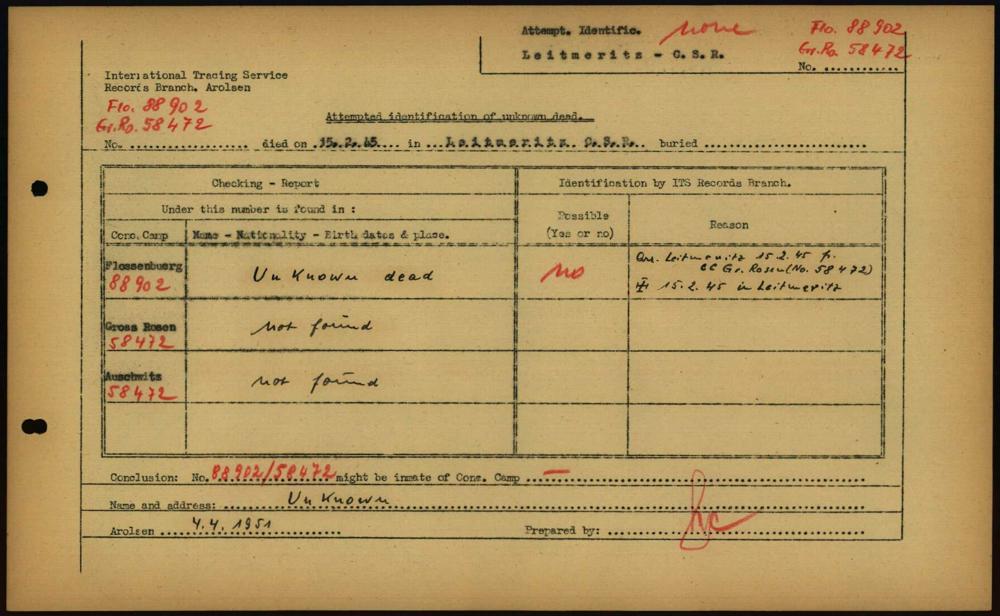 Attempt. Identific. none
Leitmeritz - C.S.R.
Flo. 88902
Gr.Ro. 58472
No. ............
International Tracing Service
Records Branch. Arolsen
Flo. 88902
Gr.Ro. 58472
Attempted identification of unknown dead.
No. ............ died on .15.2.45.... in ..Leitmeritz C.S.R.. buried ........................
Checking - Report
Identification by ITS Records Branch.
Under this number is found in :
Conc. Camp
Name - Nationality - Birth dates & place.
Possible
(Yes or no)
Reason
Flossenbuerg
88902
Unknown dead
no
Leitmeritz 15.2.45 fr.
CC Gr. Rosen (No. 58472)
15.2.45 in Leitmeritz
Gross Rosen
58472
not found
Auschwitz
58472
not found
Conclusion: No. 88902/58472 might be inmate of Conc. Camp ... —
Name and address: Unknown
Arolsen 4.4.1951
Prepared by: